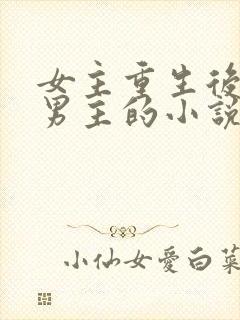 女主重生後
男主的小說
小仙女愛白菜